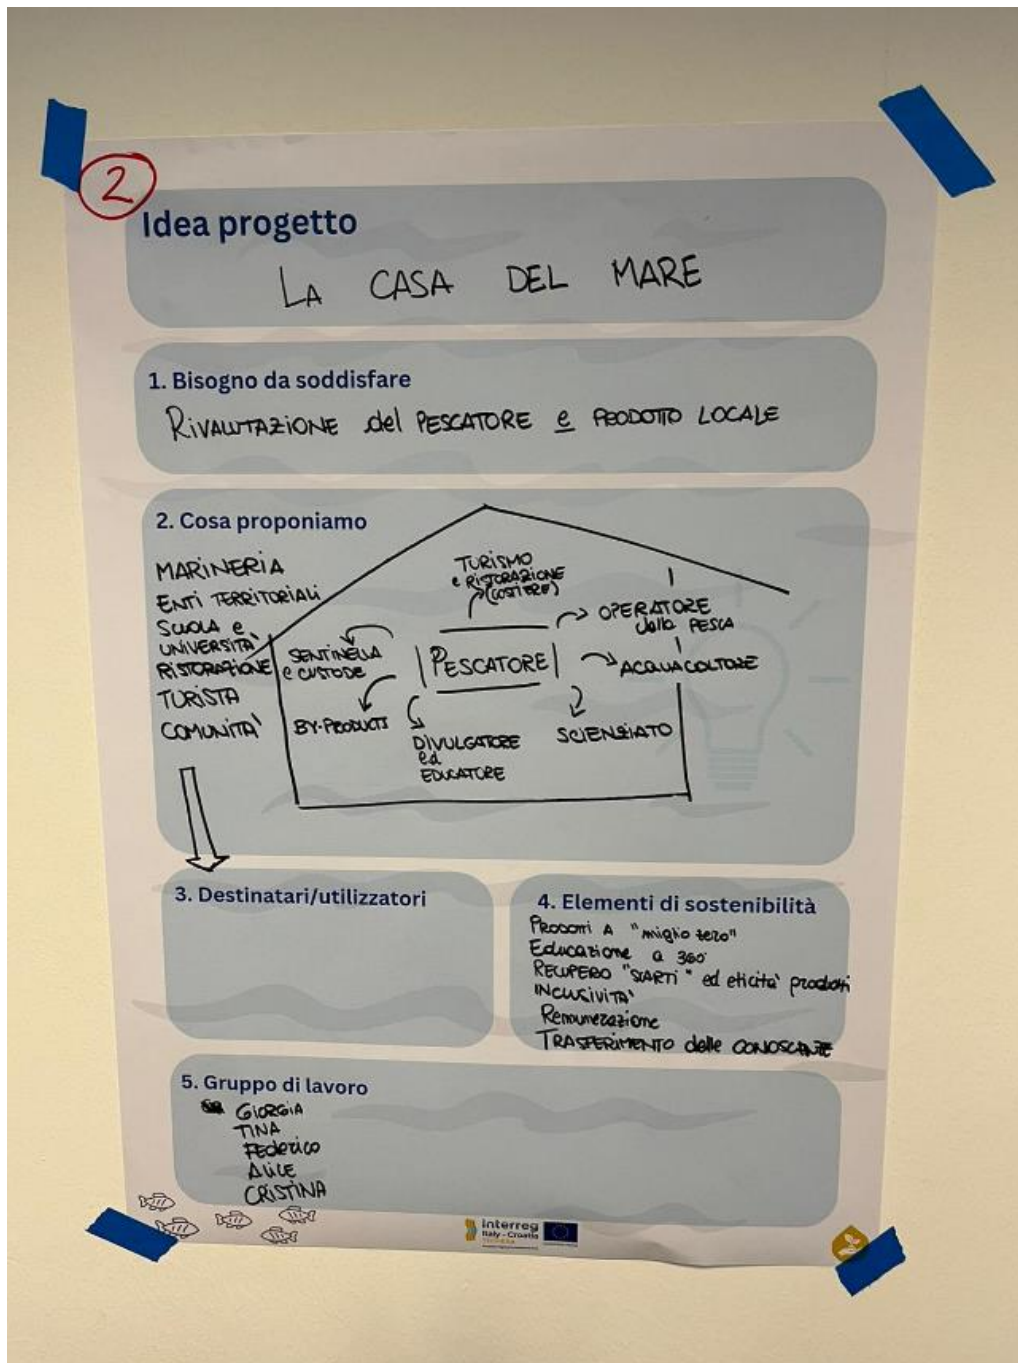 2
Idea progetto
LA CASA DEL MARE
1. Bisogno da soddisfare
RIVALUTAZIONE del PESCATORE e PRODOTTO LOCALE
2. Cosa proponiamo
MARINERIA
ENTI TERRITORIALI
SCUOLA e
UNIVERSITÀ
RISTORAZIONE
TURISTA
COMUNITÀ
TURISMO
e RISTORAZIONE
(COSTIERE)
OPERATORE
della PESCA
SENTINELLA
e CUSTODE
PESCATORE
ACQUACOLTORE
BY-PRODUCTS
DIVULGATORE
ed
EDUCATORE
SCIENZIATO
3. Destinatari/utilizzatori
4. Elementi di sostenibilità
PRODOTTI A "miglio zero"
Educazione a 360°
RECUPERO "SCARTI" ed eticità prodotti
INCLUSIVITÀ
Remunerazione
TRASFERIMENTO delle CONOSCENZE
5. Gruppo di lavoro
GIORGIA
TINA
Federico
ALICE
CRISTINA
Interreg
Italy - Croatia